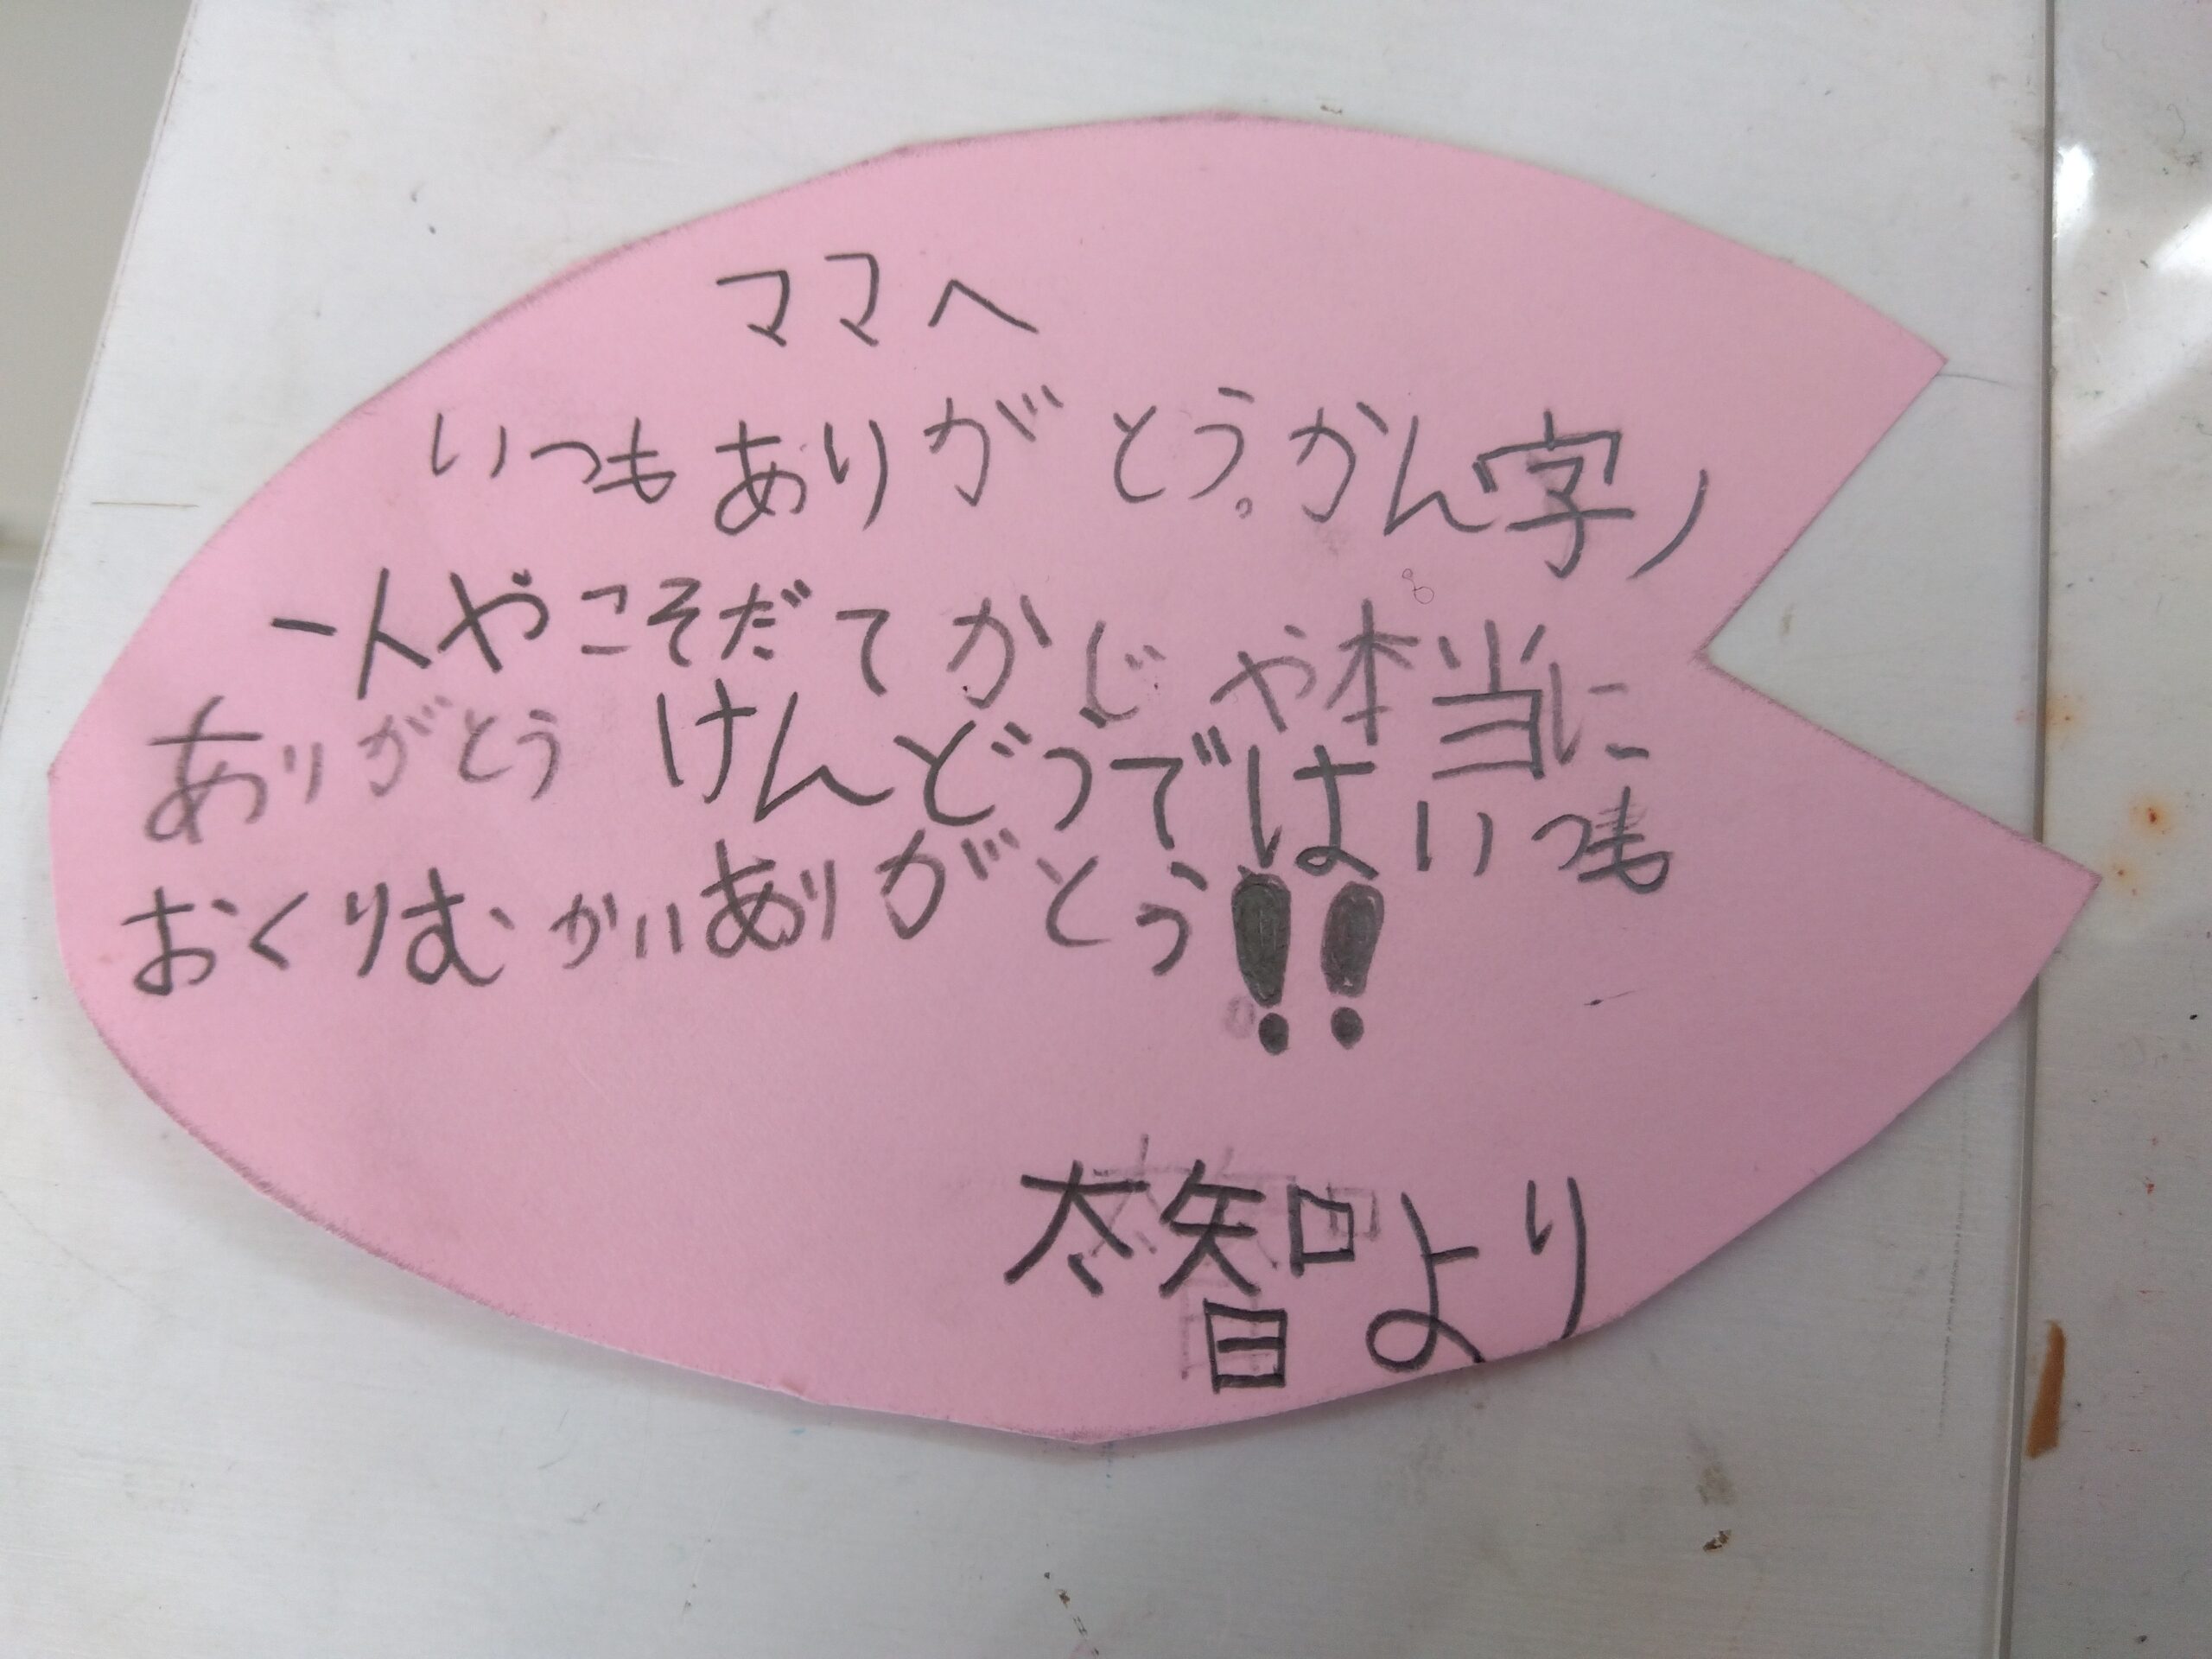 ママへ
いつもありがとう。かん字ノ
一人やこそだてかじや本当に
ありがとうけんどうではいつも
おくりむかいありがとう!!
太智より